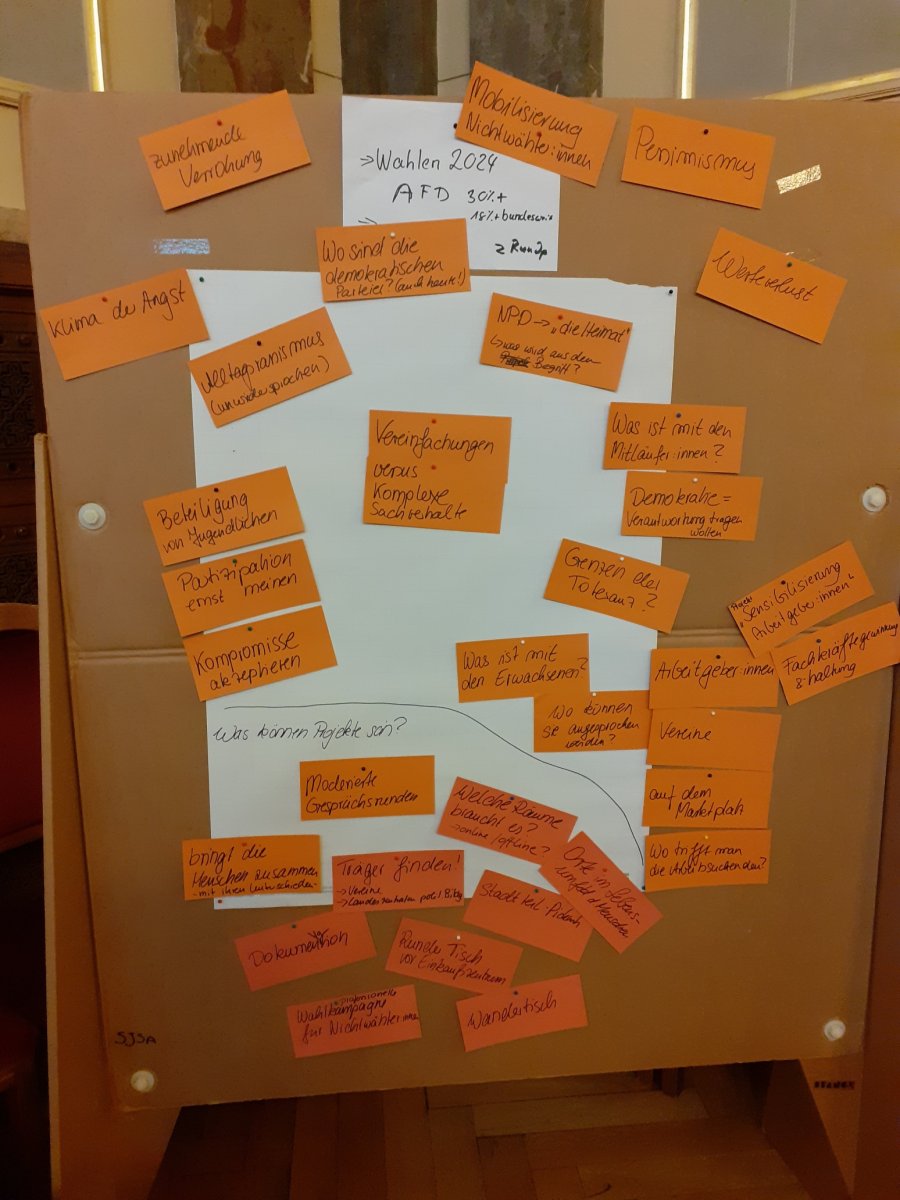 zunehmende
Verrohung
→Wahlen 2024
AFD 30%+
18%+
Mobilisierung
Nichtwähter:innen
Pessimismus
Wo sind die
demokratischen
Parteien? (auch heute!)
Werteverlust
Klima der Angst
Alltagsrassismus
(unwidersprochen)
NPD → "die Heimat"
↳ was wird aus dem
Begriff?
Vereinfachungen
versus
Komplexe
Sachverhalte
Was ist mit den
Mitläufer:innen?
Demokratie =
Verantwortung tragen
wollen
Beteiligung
von Jugendlichen
Partizipation
ernst meinen
Kompromisse
akzeptieren
Grenzen der
Toleranz?
"Sensibilisierung
Arbeitgeber:innen"
Fachkräftegewinnung
& -haltung
Was ist mit
den Erwachsenen?
Wo können
sie angesprochen
werden?
Arbeitgeber:innen
Vereine
auf dem
Marktplatz
Wo trifft man
die Arbeitsuchenden?
Was können Projekte sein?
Moderierte
Gesprächsrunden
Welche Räume
braucht es?
→online / offline?
bringt die
Menschen zusammen
- mit ihren Unterschieden -
Träger finden!
→ Vereine
→ Landeszentralen pol. Bildg
Orte im Lebens-
umfeld d Menschen
Stadtteil-Picknick
Dokumentation
Runder Tisch
vor Einkaufszentrum
professionelle
Wahlkampagne
für Nichtwähler:innen
Wandertisch
SJSA